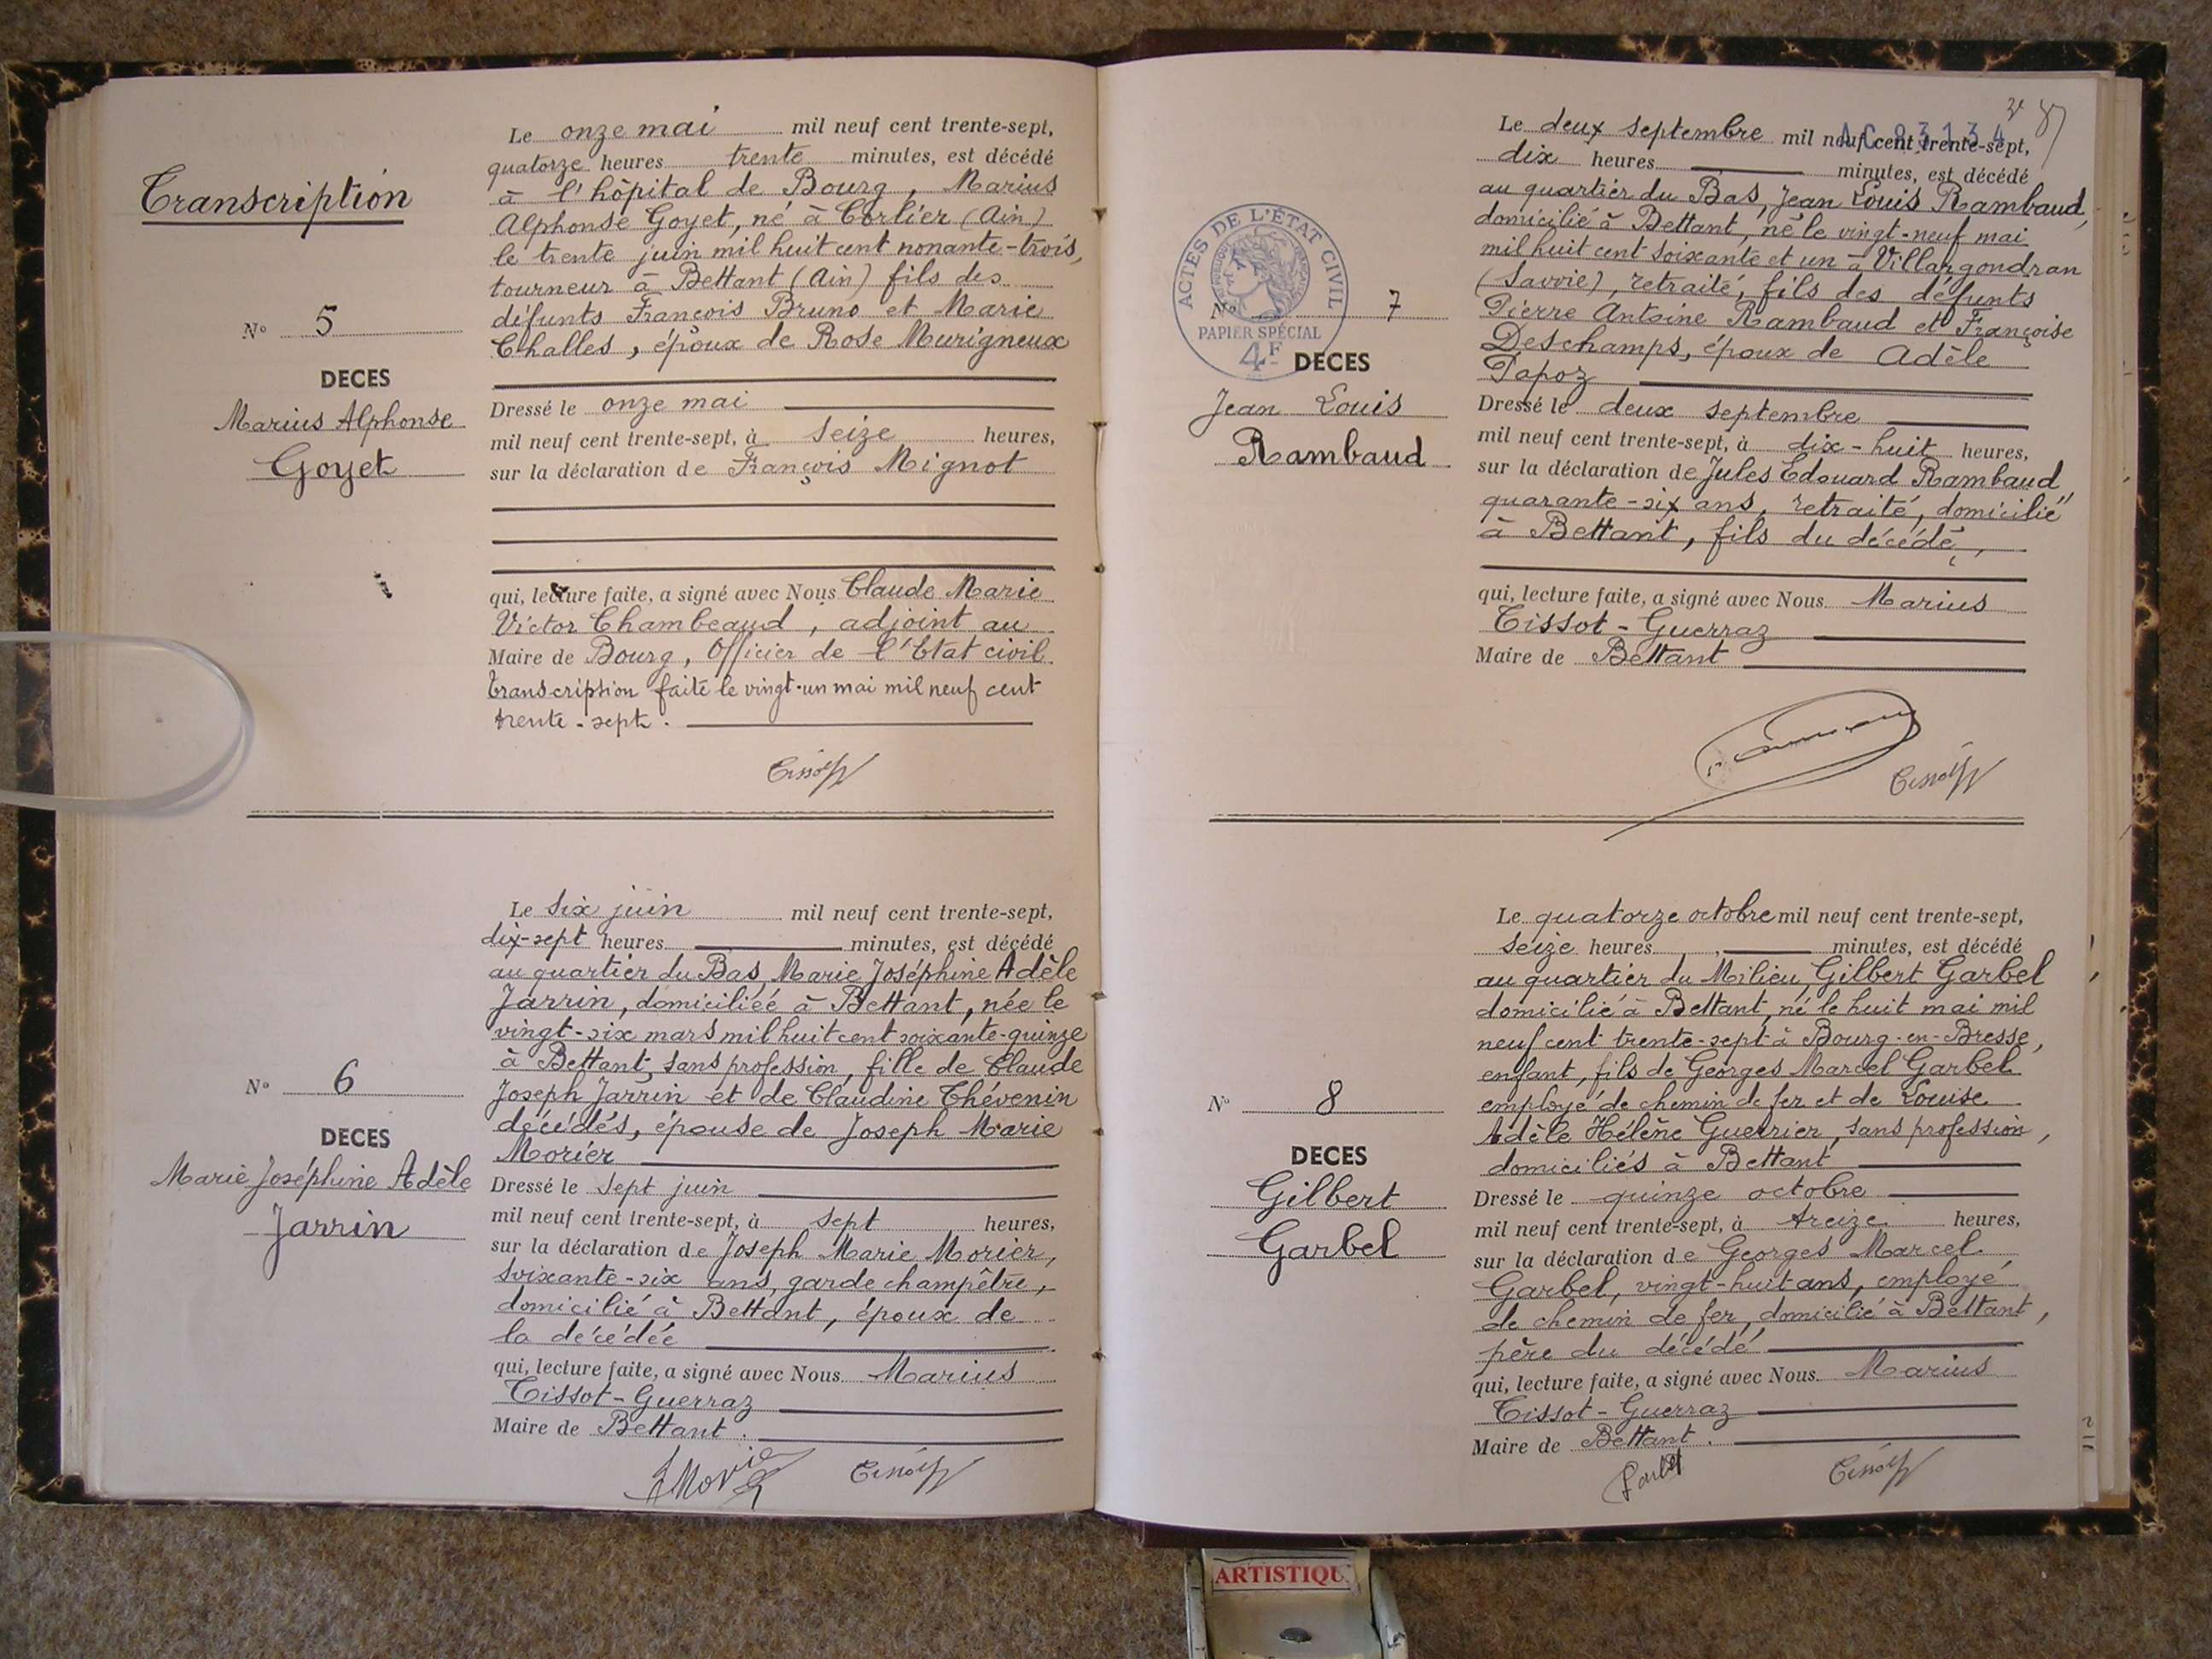 Transcription
N° 5
DECES
Marius Alphonse
Goyet
Le onze mai mil neuf cent trente-sept,
quatorze heures trente minutes, est décédé
à l'hôpital de Bourg, Marius
Alphonse Goyet, né à Corlier (Ain)
le trente juin mil huit cent nonante-trois,
tourneur à Bettant (Ain) fils des
défunts François Bruno et Marie
Challes, époux de Rose Murigneux
Dressé le onze mai
mil neuf cent trente-sept, à seize heures,
sur la déclaration de François Mignot
qui, lecture faite, a signé avec Nous Claude Marie
Victor Chambeaud, adjoint au
Maire de Bourg, Officier de l'Etat civil
Transcription faite le vingt-un mai mil neuf cent
trente-sept.
N° 6
DECES
Marie Joséphine Adèle
Jarrin
Le six juin mil neuf cent trente-sept,
dix-sept heures minutes, est décédé
au quartier du Bas, Marie Joséphine Adèle
Jarrin, domiciliée à Bettant, née le
vingt-six mars mil huit cent soixante-quinze
à Bettant, sans profession, fille de Claude
Joseph Jarrin et de Claudine Thévenin
décédés, épouse de Joseph Marie
Morier
Dressé le sept juin
mil neuf cent trente-sept, à sept heures,
sur la déclaration de Joseph Marie Morier,
soixante-six ans, garde champêtre,
domicilié à Bettant, époux de
la décédée
qui, lecture faite, a signé avec Nous Marius
Tissot-Guerraz
Maire de Bettant.
ACTES DE L'ÉTAT CIVIL
PAPIER SPÉCIAL
4F
N° 7
DECES
Jean Louis
Rambaud
Le deux septembre mil neuf cent trente-sept,
dix heures minutes, est décédé
au quartier du Bas, Jean Louis Rambaud,
domicilié à Bettant, né le vingt-neuf mai
mil huit cent soixante et un à Villargondran
(Savoie), retraité, fils des défunts
Pierre Antoine Rambaud et Françoise
Deschamps, époux de Adèle
Papoz
Dressé le deux septembre
mil neuf cent trente-sept, à dix-huit heures,
sur la déclaration de Jules Edouard Rambaud
quarante-six ans, retraité, domicilié
à Bettant, fils du décédé,
qui, lecture faite, a signé avec Nous Marius
Tissot-Guerraz
Maire de Bettant
N° 8
DECES
Gilbert
Garbel
Le quatorze octobre mil neuf cent trente-sept,
seize heures minutes, est décédé
au quartier du Milieu, Gilbert Garbel
domicilié à Bettant, né le huit mai mil
neuf cent trente-sept à Bourg-en-Bresse,
enfant, fils de Georges Marcel Garbel
employé de chemin de fer et de Louise
Adèle Hélène Guerrier, sans profession,
domiciliés à Bettant
Dressé le quinze octobre
mil neuf cent trente-sept, à treize heures,
sur la déclaration de Georges Marcel
Garbel, vingt-huit ans, employé
de chemin de fer, domicilié à Bettant,
père du décédé
qui, lecture faite, a signé avec Nous Marius
Tissot-Guerraz
Maire de Bettant.
Garbel
ARTISTIQU